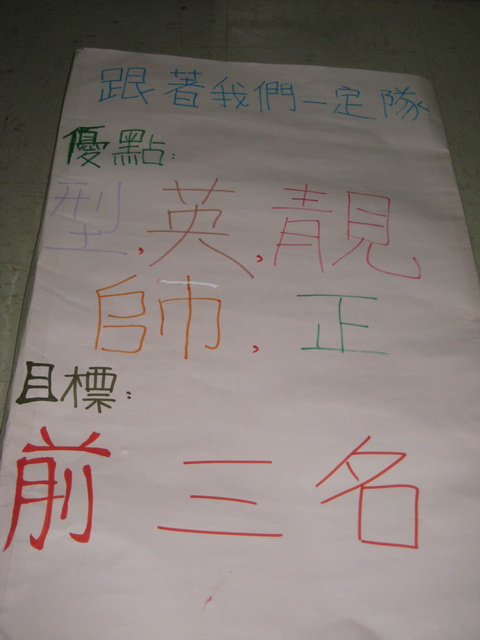 跟著我們一定隊
優點:
型,英,靚
帥,正
目標:
前三名